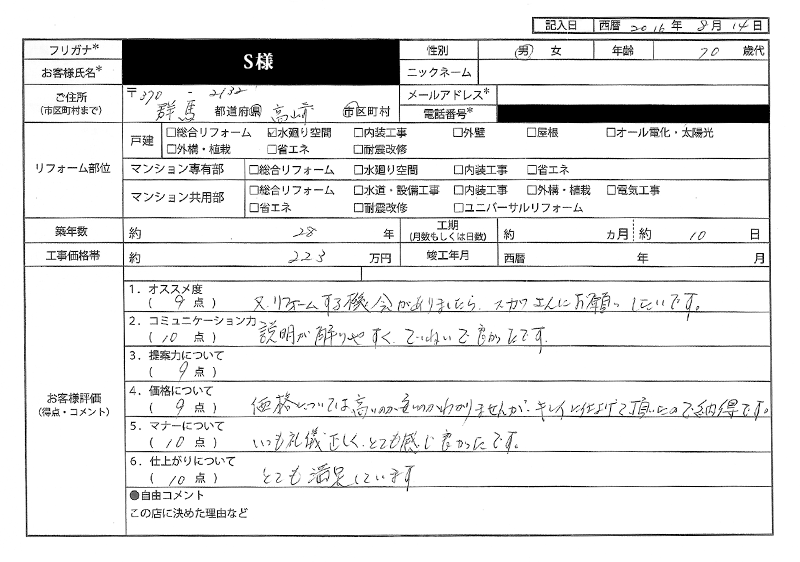 記入日 西暦 2016 年 8 月 14 日
フリガナ* S様 性別 男 女 年齢 70 歳代
お客様氏名* ニックネーム
ご住所 (市区町村まで) 〒370-2132 群馬 都道府県 高崎 市区町村 メールアドレス*
電話番号*
リフォーム部位 戸建 □総合リフォーム ☑水廻り空間 □内装工事 □外壁 □屋根 □オール電化・太陽光
□外構・植栽 □省エネ □耐震改修
マンション専有部 □総合リフォーム □水廻り空間 □内装工事 □省エネ
マンション共用部 □総合リフォーム □水道・設備工事 □内装工事 □外構・植栽 □電気工事
□省エネ □耐震改修 □ユニバーサルリフォーム
築年数 約 28 年 工期 (月数もしくは日数) 約 ヵ月 約 10 日
工事価格帯 約 223 万円 竣工年月 西暦 年 月
お客様評価 (得点・コメント)
1. オススメ度
( 9 点 ) 又、リフォームする機会がありましたら、スガワさんにお願いしたいです。
2. コミュニケーション力
( 10 点 ) 説明が解りやすく、ていねいで良かったです。
3. 提案力について
( 9 点 )
4. 価格について
( 9 点 ) 価格については高いのか安いのかわかりませんが、キレイに仕上げて頂いたので納得です。
5. マナーについて
( 10 点 ) いつも礼儀正しく、とても感じ良かったです。
6. 仕上がりについて
( 10 点 ) とても満足しています
●自由コメント
この店に決めた理由など